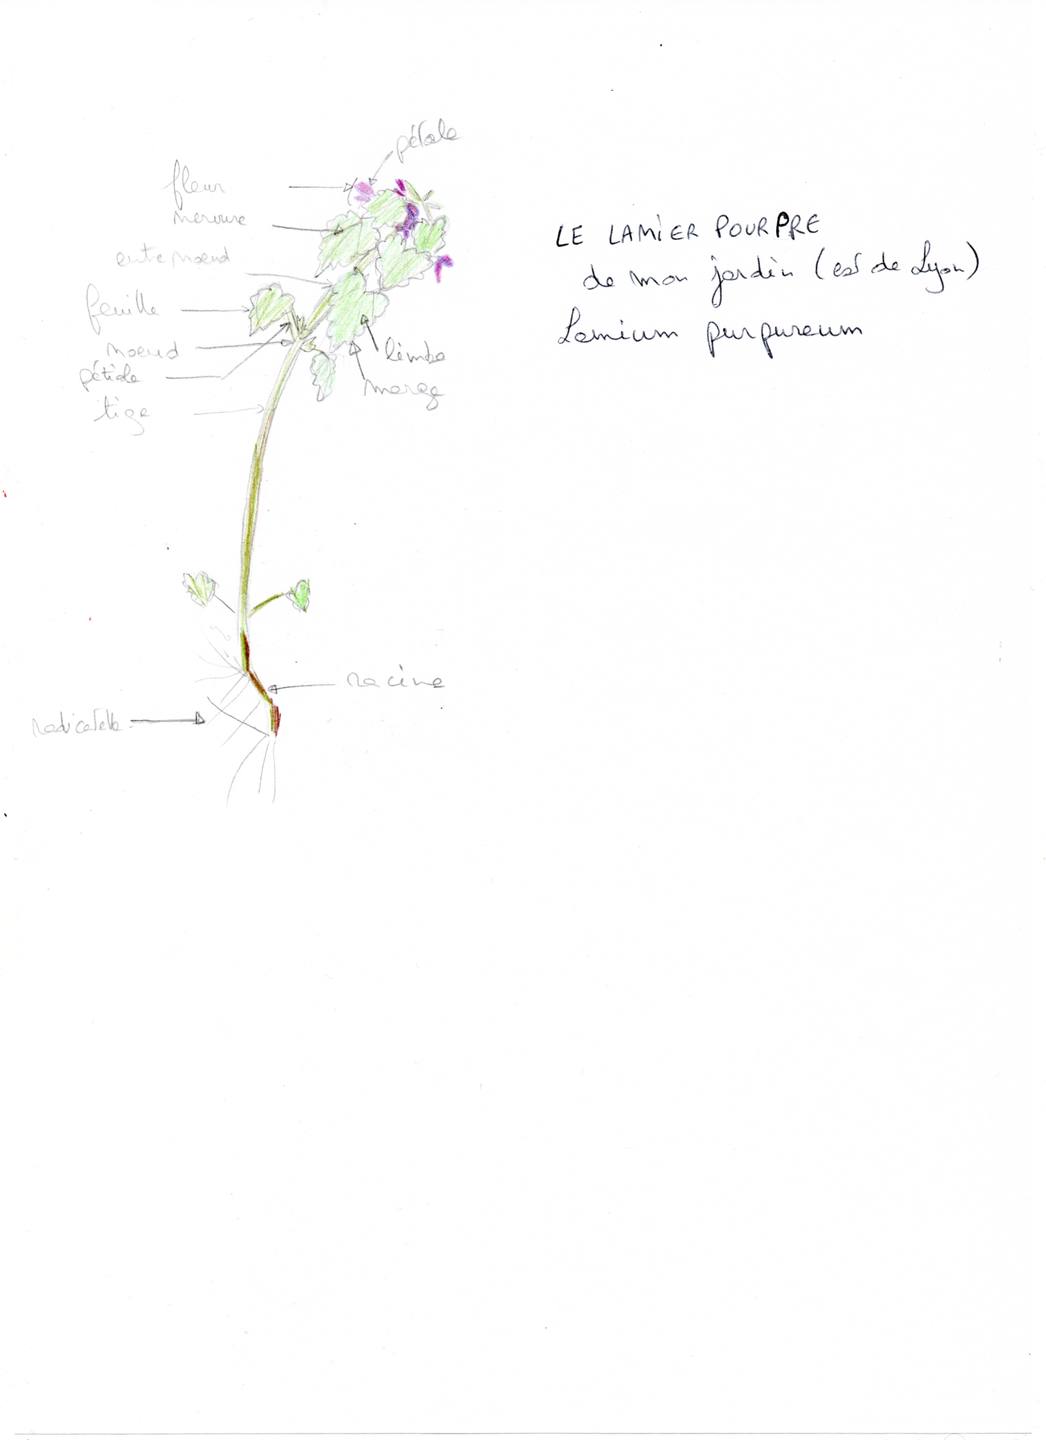 pétale
fleur
nervure
entenoeud
feuille
noeud
pétiole
tige
limbe
marge
racine
radicelle
LE LAMIER POURPRE
de mon jardin (est de Lyon)
Lamium purpureum